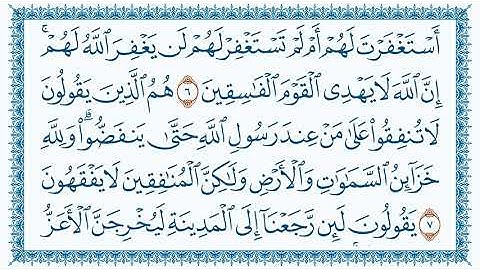 أَسْتَغْفَرْتَ لَهُمْ أَمْ لَمْ تَسْتَغْفِرْ لَهُمْ لَن يَغْفِرَ ٱللَّهُ لَهُمْ ۚ
إِنَّ ٱللَّهَ لَا يَهْدِى ٱلْقَوْمَ ٱلْفَـٰسِقِينَ ٦ هُمُ ٱلَّذِينَ يَقُولُونَ
لَا تُنفِقُوا۟ عَلَىٰ مَنْ عِندَ رَسُولِ ٱللَّهِ حَتَّىٰ يَنفَضُّوا۟ ۗ وَلِلَّهِ
خَزَآئِنُ ٱلسَّمَـٰوَٰتِ وَٱلْأَرْضِ وَلَـٰكِنَّ ٱلْمُنَـٰفِقِينَ لَا يَفْقَهُونَ
٧ يَقُولُونَ لَئِن رَّجَعْنَآ إِلَى ٱلْمَدِينَةِ لَيُخْرِجَنَّ ٱلْأَعَزُّ